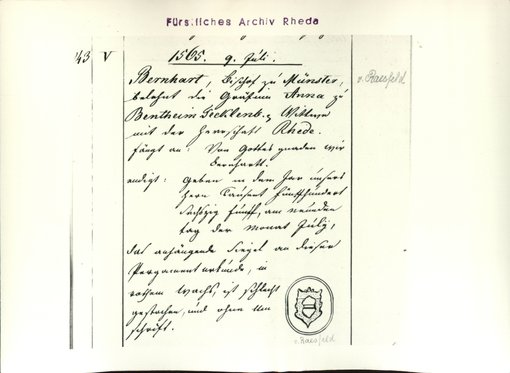 Fürstliches Archiv Rheda
43 V 1565. 9. Júli.
v. Raesfeld
Bernhart, Bischof zú Münster,
belehnt die Gräfinn Anna zú
Bentheim Tecklenb., Wittwe
mit der Herrschaft Rheda.
fängt an: Von Gottes gnaden wir
Bernhartt.
endigt: Geben in dem Jar unsers
Hern Taúsent fünffhúndert
Sechszig fünff, am neúnden
tag der monat Júlÿ,
das anhängende Siegel an dieser
Pergamentúrkúnde, in
rothem Wachs, ist schlecht
gestochen, únd ohne Um
schrift.
v. Raesfeld